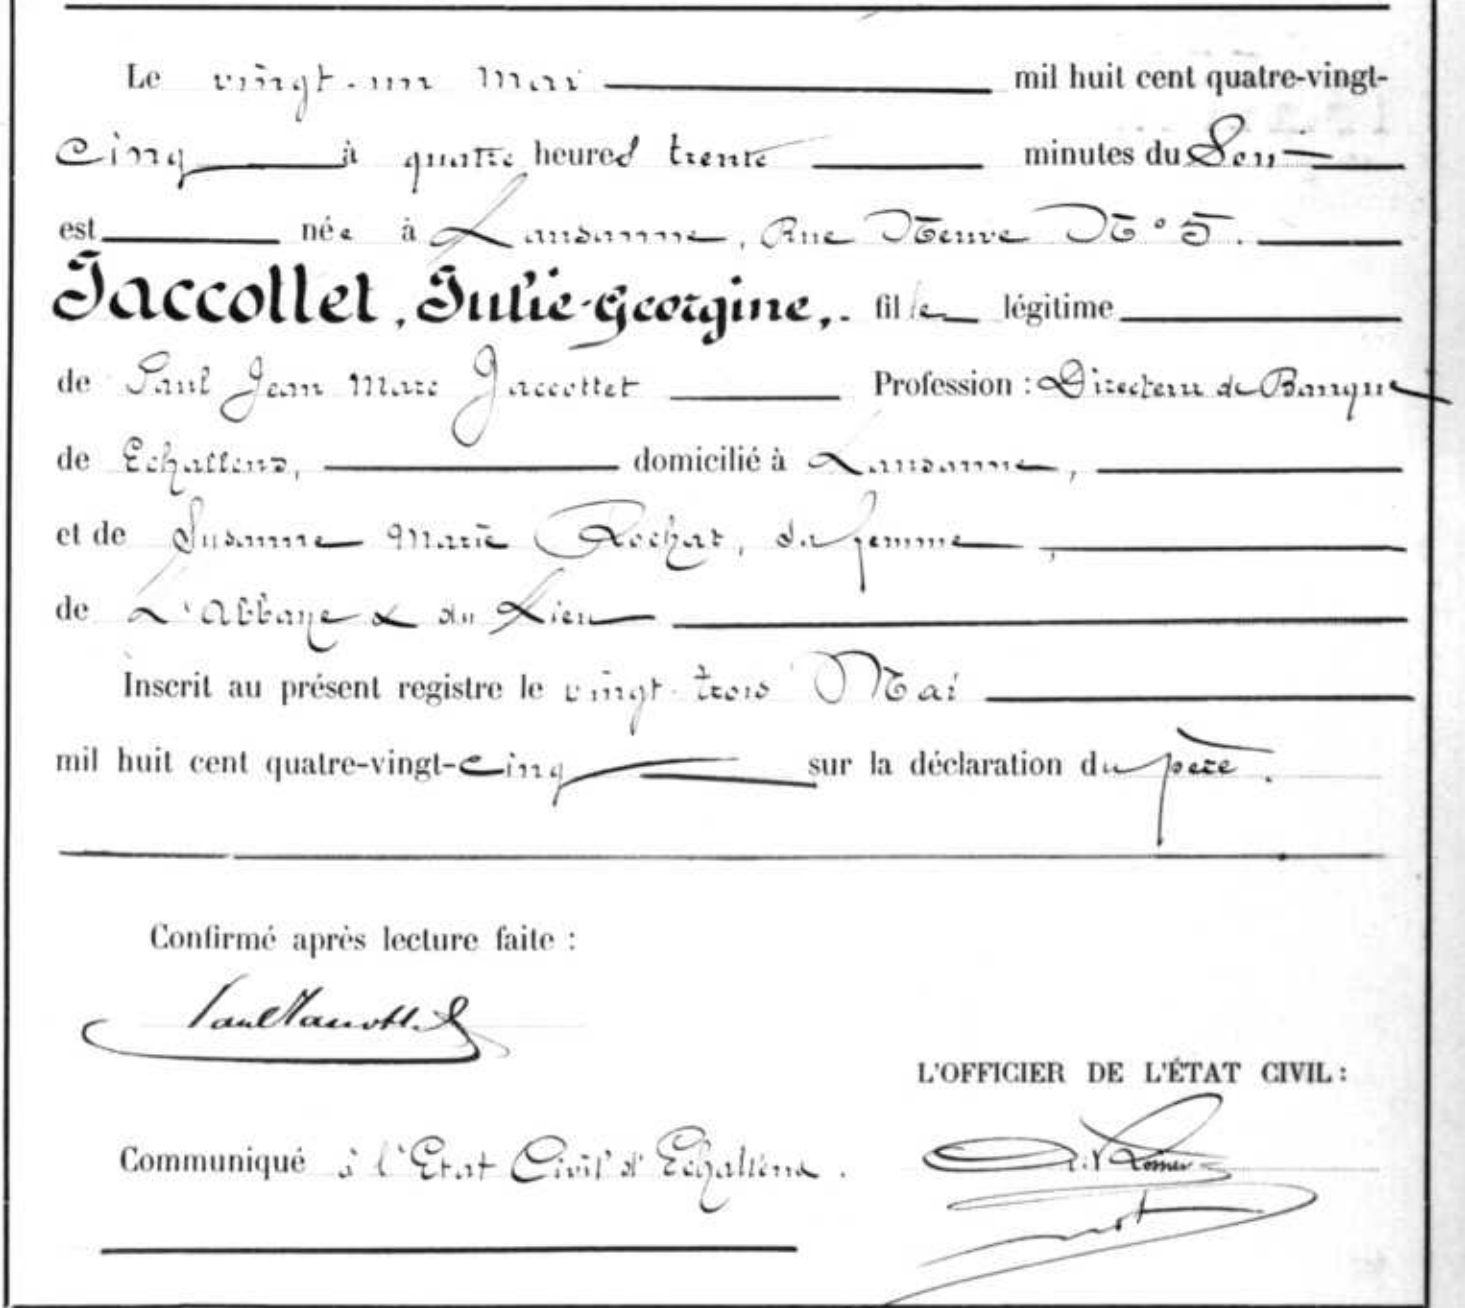 Le vingt-un Mai mil huit cent quatre-vingt-
cinq à quatre heures trente minutes du Soir
est née à Lausanne, Rue Neuve N° 5.
Jaccottet, Julie-Georgine, fille légitime
de Paul Jean Marc Jaccottet Profession : Directeur de Banque
de Echallens, domicilié à Lausanne,
et de Susanne Marie Rochat, sa femme,
de L'Abbaye & du Lieu
Inscrit au présent registre le vingt-trois Mai
mil huit cent quatre-vingt-cinq sur la déclaration du père.
Confirmé après lecture faite :
Paul Jaccottet
L'OFFICIER DE L'ÉTAT CIVIL :
Communiqué à l'Etat Civil d'Echallens.